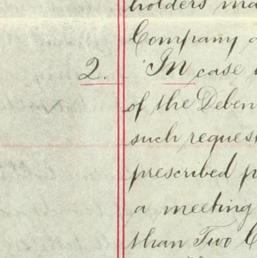 holders ma
Company a
2. In case
of the Deben
such reques
prescribed p
a meeting
than Two